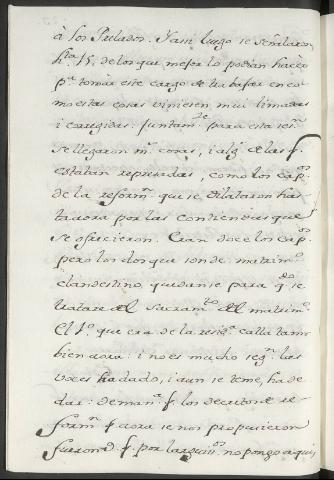 à los Prelados. I assi luego se señalaron
hta. 15. de los que mejor lo podian hacèr
pa. tomàr este cargo de trabajar en co
mo estas cosas viniesen mui limadas
i corregidas. Juntamte. para esta sesn.
se llegaron ms. cosas, i algs. de las q.
estaban represadas, como los capos.
de la reformn. que se dilataron has-
ta aora por las contiendas que
se ofrecieron. Eran doce los capos.
pero los dos que son de matrimo.
clandestino, quedanse para qdo. se
tratare del Sacramto. del matrimo.
El 1o. que era de la resida. calla tam-
bien aora: i no es mucho segn. las
voces ha dado, i aun se teme, ha de
dar: de mana. q. los decretos de re-
formn. q. aora se nos propusieron
fueron 9. q. por larguisos. no pongo aqui